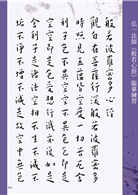 弘一法師《般若心經》臨摹練習
般若波羅蜜多心經
觀自在菩薩行深般若波羅蜜多
時照見五蘊皆空度一切苦厄
舍利子色不異空空不異色色即
是空空即是色受想行識亦復如是
舍利子是諸法空相不生不滅不
垢不淨不增不減是故空中無色